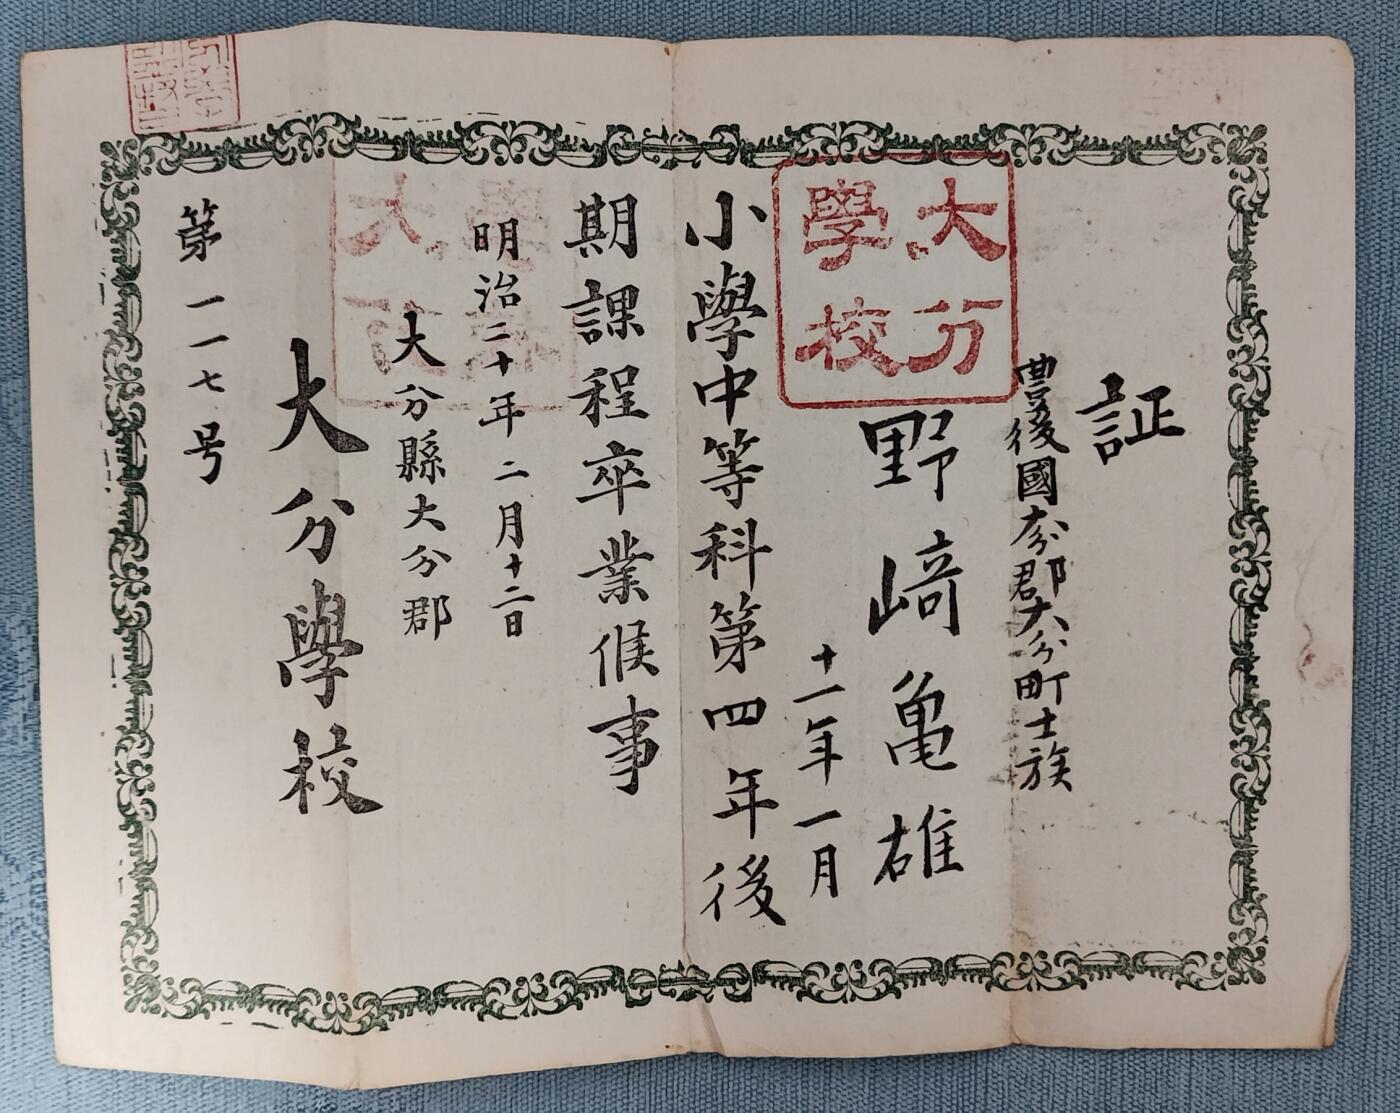 証
豊後國大分郡大分町士族
野﨑亀雄
十一年一月
大分
學校
小學中等科第四年後
期課程卒業候事
明治二十年二月十二日
大分縣大分郡
大分學校
第一一七号